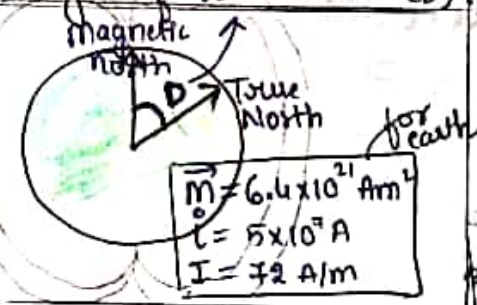 magnetic
north
D
True
North
for
earth
m⃗ = 6.4×10²¹ Am²
i = 5×10⁷ A
I = 72 A/m